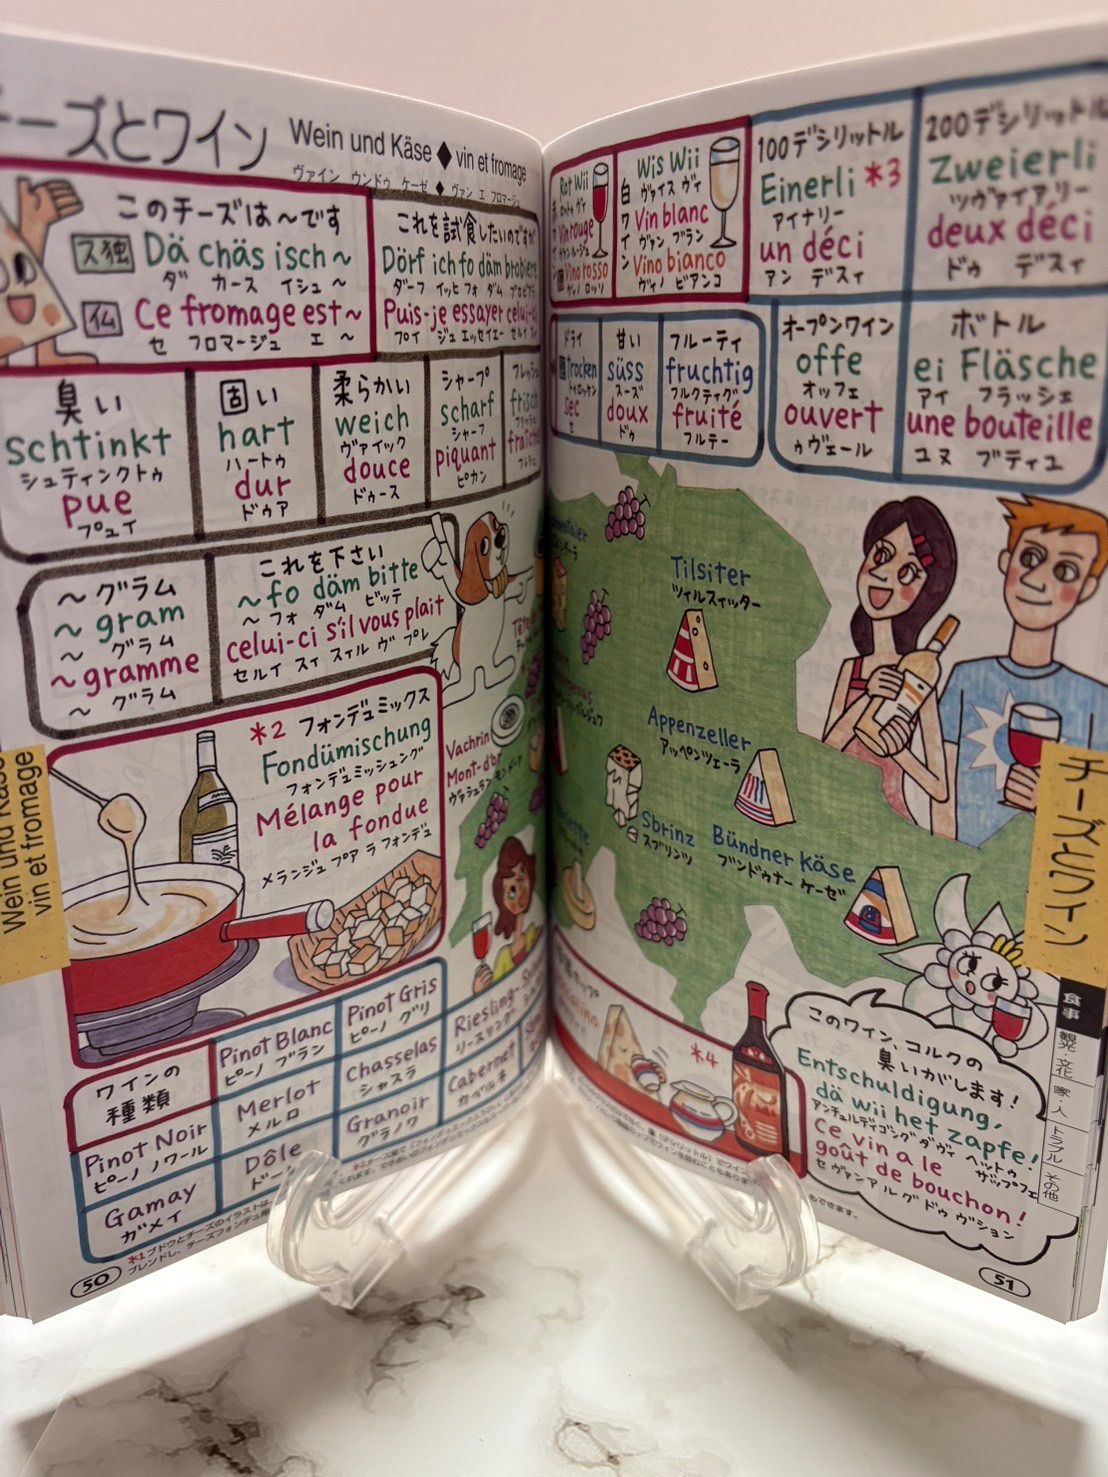 チーズとワイン
Wein und Käse ◆ vin et fromage
ヴァイン ウンドゥ ケーゼ ◆ ヴァン エ フロマージュ
このチーズは〜です
ス独 Dä chäs isch〜
ダ カース イシュ 〜
仏 Ce fromage est〜
セ フロマージュ エ 〜
これを試食したいのですが
Dörf ich fo däm probiere
ダーフ イッヒ フォ ダム プロビアラ
Puis-je essayer celui-ci
プイ ジュ エッセイエー セルイ
臭い
schtinkt
シュティンクトゥ
pue
プュイ
固い
hart
ハートゥ
dur
ドゥア
柔らかい
weich
ヴァイック
douce
ドゥース
シャープ
scharf
シャーフ
piquant
ピカン
フレッシュ
frisch
フリッシュ
〜グラム
〜gram
〜 グラム
〜gramme
〜 グラム
これを下さい
〜fo däm bitte
〜 フォ ダム ビッテ
celui-ci s'il vous plait
セルイ スィ スィル ヴ プレ
*2 フォンデュミックス
Fondümischung
フォンデュミッシュング
Mélange pour
la fondue
メランジュ プア ラ フォンデュ
Vachrin
Mont-d'or
ヴァシュラン モンドーア
ワインの
種類
Pinot Blanc
ピーノ ブラン
Pinot Gris
ピーノ グリ
Riesling-
リースリング
Merlot
メルロ
Chasselas
シャスラ
Cabernet
カベルネ
Pinot Noir
ピーノ ノワール
Dôle
Granoir
グラノワ
Gamay
ガメイ
50
Wein und Käse
vin et fromage
Rot Wii
Vin rouge
ヴァン ルージュ
Vino rosso
ヴィノ ロッソ
白ワイン
Wis Wii
ヴァイス ヴィ
Vin blanc
ヴァン ブラン
Vino bianco
ヴィノ ビアンコ
100デシリットル
Einerli *3
アイナリー
un déci
アン デスィ
200デシリットル
Zweierli
ツヴァイアリー
deux déci
ドゥ デスィ
ドライ
trocken
トゥロッケン
sec
甘い
süss
スーズ
doux
ドゥ
フルーティ
fruchtig
フルクティグ
fruité
フルテー
オープンワイン
offe
オッフェ
ouvert
ゥヴェール
ボトル
ei Fläsche
アイ フラッシェ
une bouteille
ユヌ ブティユ
Tilsiter
ツィルスィッター
Appenzeller
アッペンツェーラ
Sbrinz
スブリンツ
Bündner Käse
ブンドゥナー ケーゼ
*4
このワイン、コルクの
臭いがします!
Entschuldigung,
dä wii het zapfe!
アンチュルディゴング ダ ヴィ ヘットゥ ザップフェ
Ce vin a le
goût de bouchon!
セ ヴァン ア ル グ ドゥ ヴション
チーズとワイン
食事
観光・文化
家・人
トラブル
その他
51